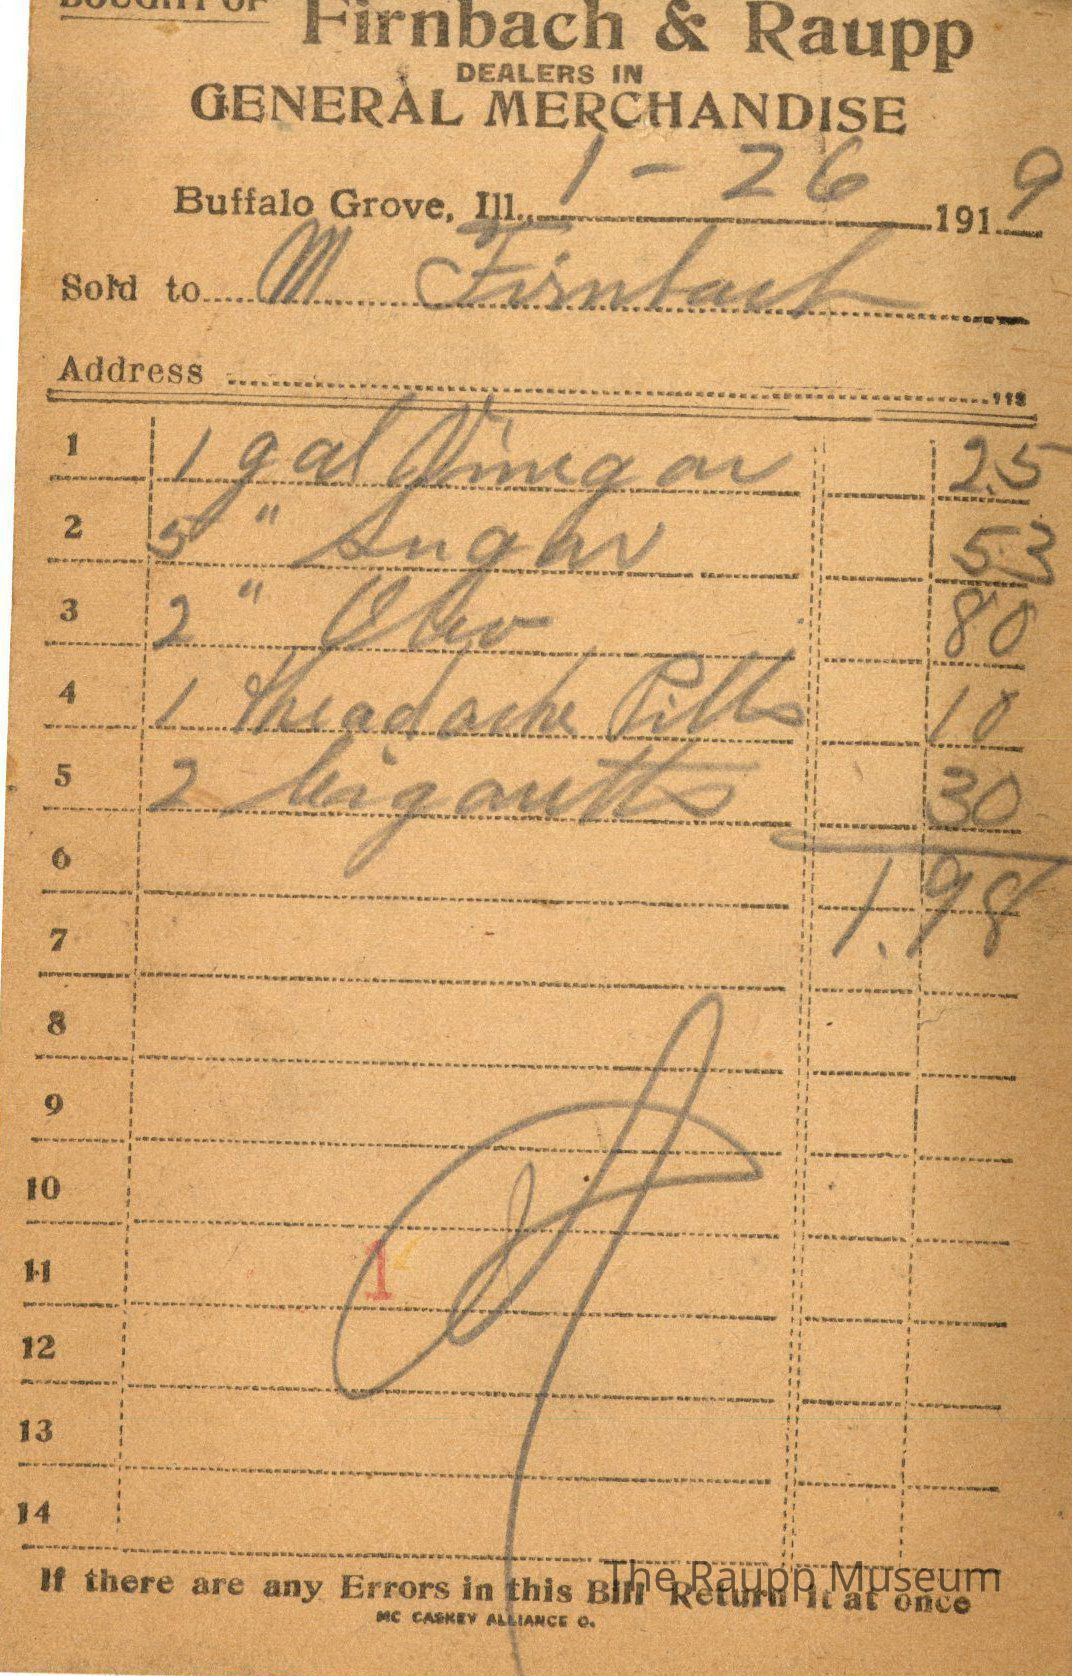 BOUGHT OF
Firnbach & Raupp
DEALERS IN
GENERAL MERCHANDISE
Buffalo Grove, Ill. 1-26 1919
Sold to M Firnbach
Address
1 1 gal Vinegar 25
2 5 " Sugar 53
3 2 " Oleo 80
4 1 Headache Pills 10
5 2 Cigaretts 30
6 1.98
7
8
9
10
11 1
12
13
14
If there are any Errors in this Bill Return it at once
The Raupp Museum
MC CASKEY ALLIANCE O.